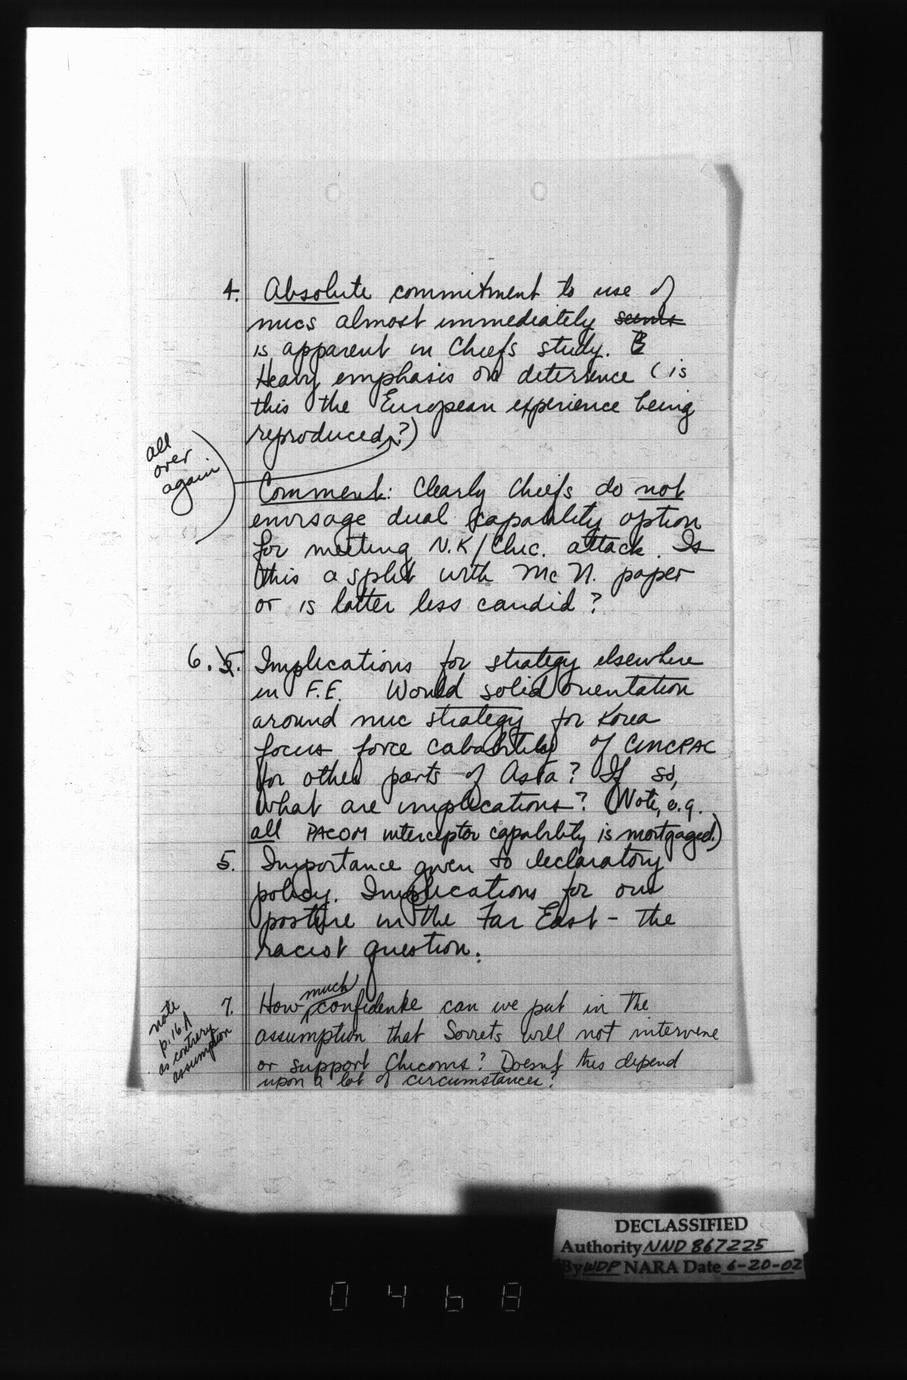 4. Absolute commitment to use of
nucs almost immediately seems
is apparent in Chiefs study. B
Heavy emphasis on deterrence (is
this the European experience being
reproduced ?)
all
over
again
Comment: Clearly Chiefs do not
envisage dual capability option
for meeting N.K/Chic. attack. Is
this a split with McN. paper
or is latter less candid?
6. 5. Implications for strategy elsewhere
in F.E. Would solid orientation
around nuc strategy for Korea
focus force cabability of CINCPAC
for other parts of Asia? If so,
what are implications? (Note, e.g.
all PACOM interceptor capability is mortgaged.)
5. Importance given to declaratory
policy. Implications for our
posture in the Far East - the
racist question.
note
p. 16A
as contrary
assumption
7. How much confidence can we put in the
assumption that Soviets will not intervene
or support Chicoms? Doesn't this depend
upon a lot of circumstances?
DECLASSIFIED
Authority NND 867225
By WDP NARA Date 6-20-02
0468